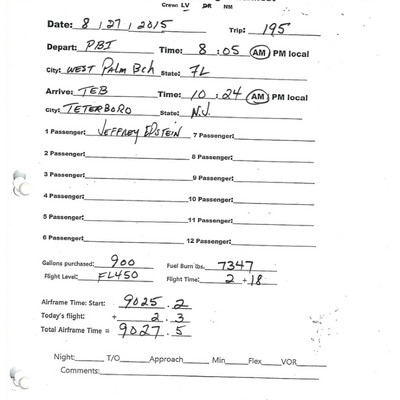 Crew LV DR NM
Date: 8 / 27 / 2015 Trip: 195
Depart: PBI Time: 8 : 05 AM PM local
City: WEST PALM BCH State: FL
Arrive: TEB Time: 10 : 24 AM PM local
City: TETERBORO State: N.J.
1 Passenger: JEFFREY EPSTEIN 7 Passenger:
2 Passenger: 8 Passenger:
3 Passenger: 9 Passenger:
4 Passenger: 10 Passenger:
5 Passenger: 11 Passenger:
6 Passenger: 12 Passenger:
Gallons purchased: 900 Fuel Burn lbs. 7347
Flight Level: FL450 Flight Time: 2 + 18
Airframe Time: Start: 9025 . 2
Today's flight: + 2 . 3
Total Airframe Time = 9027 . 5
Night: T/O Approach Min Flex VOR
Comments: